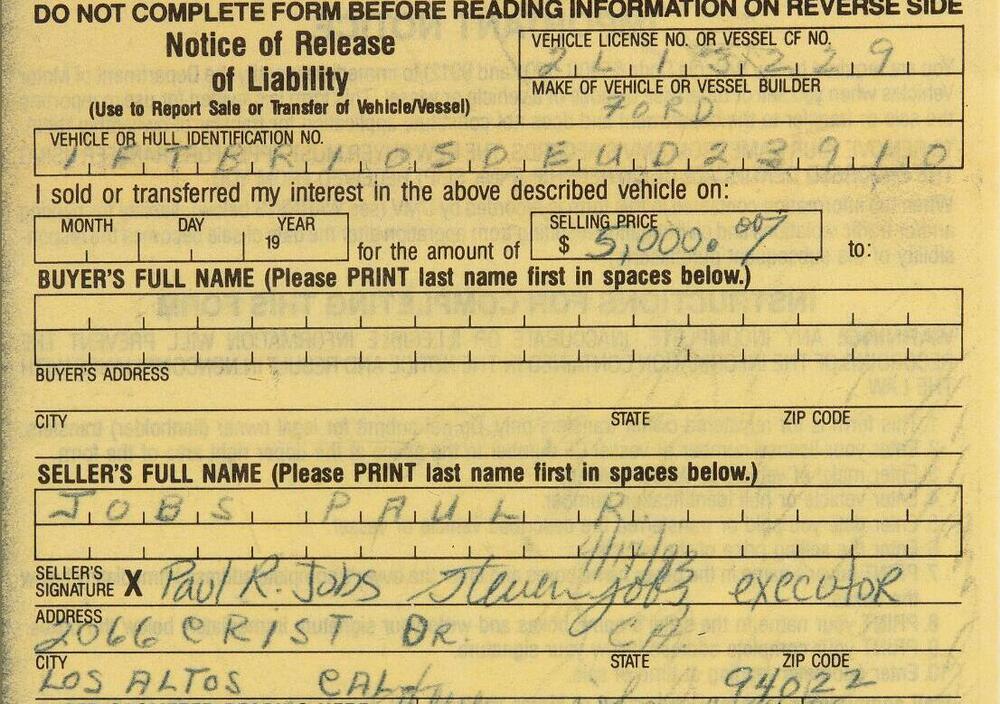 DO NOT COMPLETE FORM BEFORE READING INFORMATION ON REVERSE SIDE
Notice of Release
of Liability
(Use to Report Sale or Transfer of Vehicle/Vessel)
VEHICLE LICENSE NO. OR VESSEL CF NO.
2L13229
MAKE OF VEHICLE OR VESSEL BUILDER
FORD
VEHICLE OR HULL IDENTIFICATION NO.
1FTBR10S0EUD23910
I sold or transferred my interest in the above described vehicle on:
MONTH DAY YEAR
19
for the amount of
SELLING PRICE
$ 5,000.00
to:
BUYER'S FULL NAME (Please PRINT last name first in spaces below.)
BUYER'S ADDRESS
CITY STATE ZIP CODE
SELLER'S FULL NAME (Please PRINT last name first in spaces below.)
JOBS PAUL R
SELLER'S
SIGNATURE X Paul R. Jobs Steven Jobs executor
ADDRESS
2066 CRIST DR
CITY STATE ZIP CODE
LOS ALTOS CAL 94022